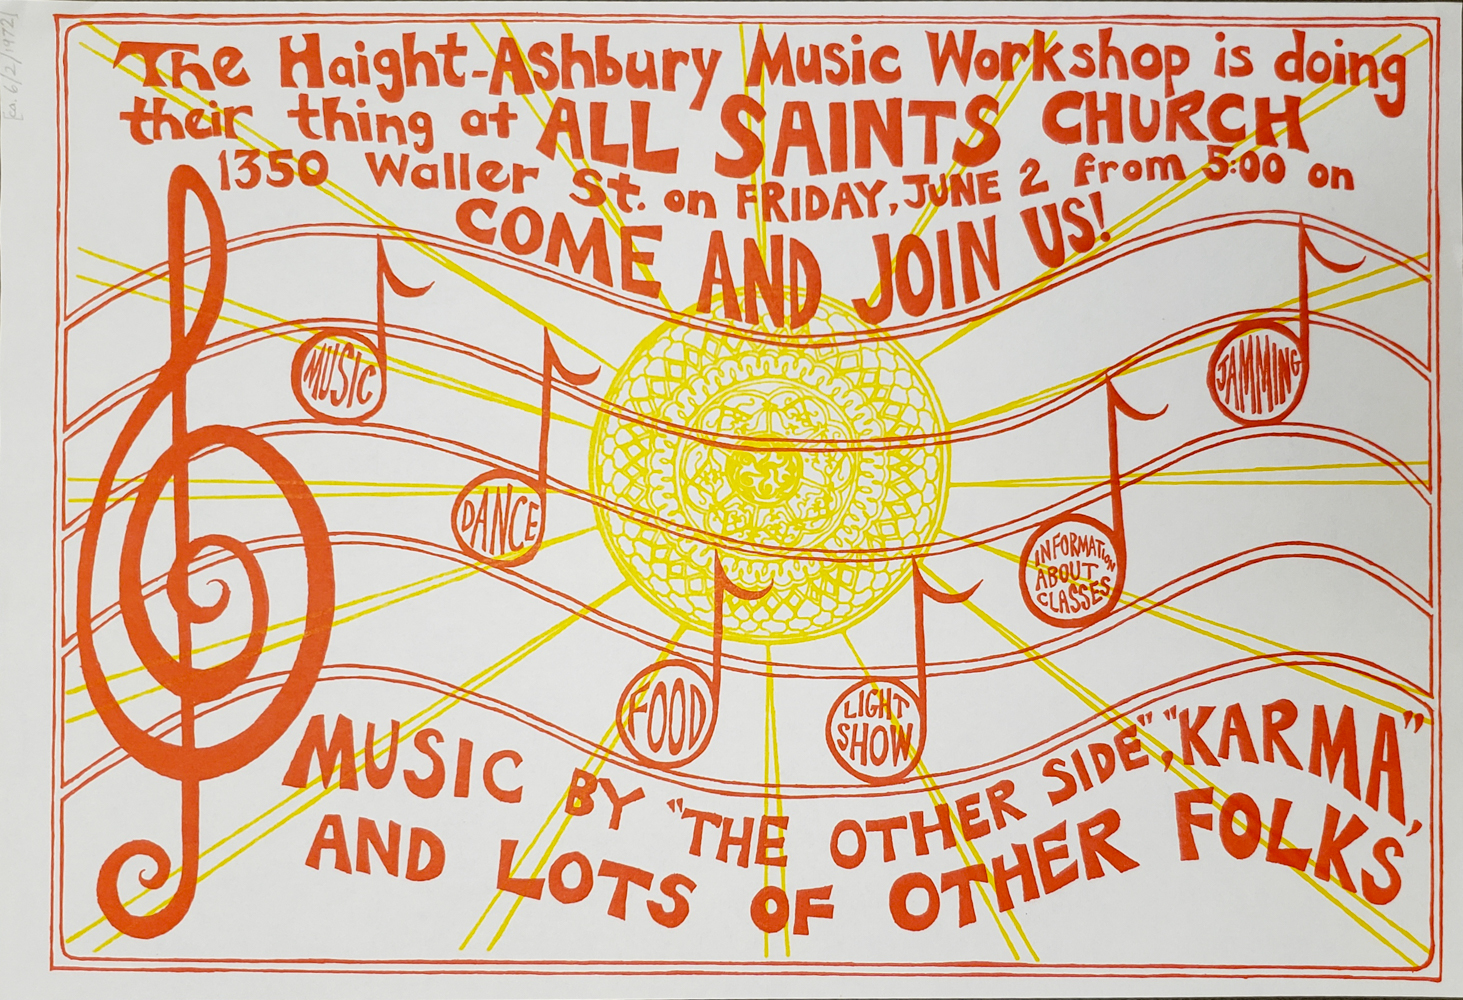 [ca. 6/2/1972]
The Haight-Ashbury Music Workshop is doing
their thing at ALL SAINTS CHURCH
1350 Waller St. on FRIDAY, JUNE 2 from 5:00 on
COME AND JOIN US!
MUSIC
DANCE
FOOD
LIGHT
SHOW
INFORMATION
ABOUT
CLASSES
JAMMING
MUSIC BY "THE OTHER SIDE", "KARMA",
AND LOTS OF OTHER FOLKS